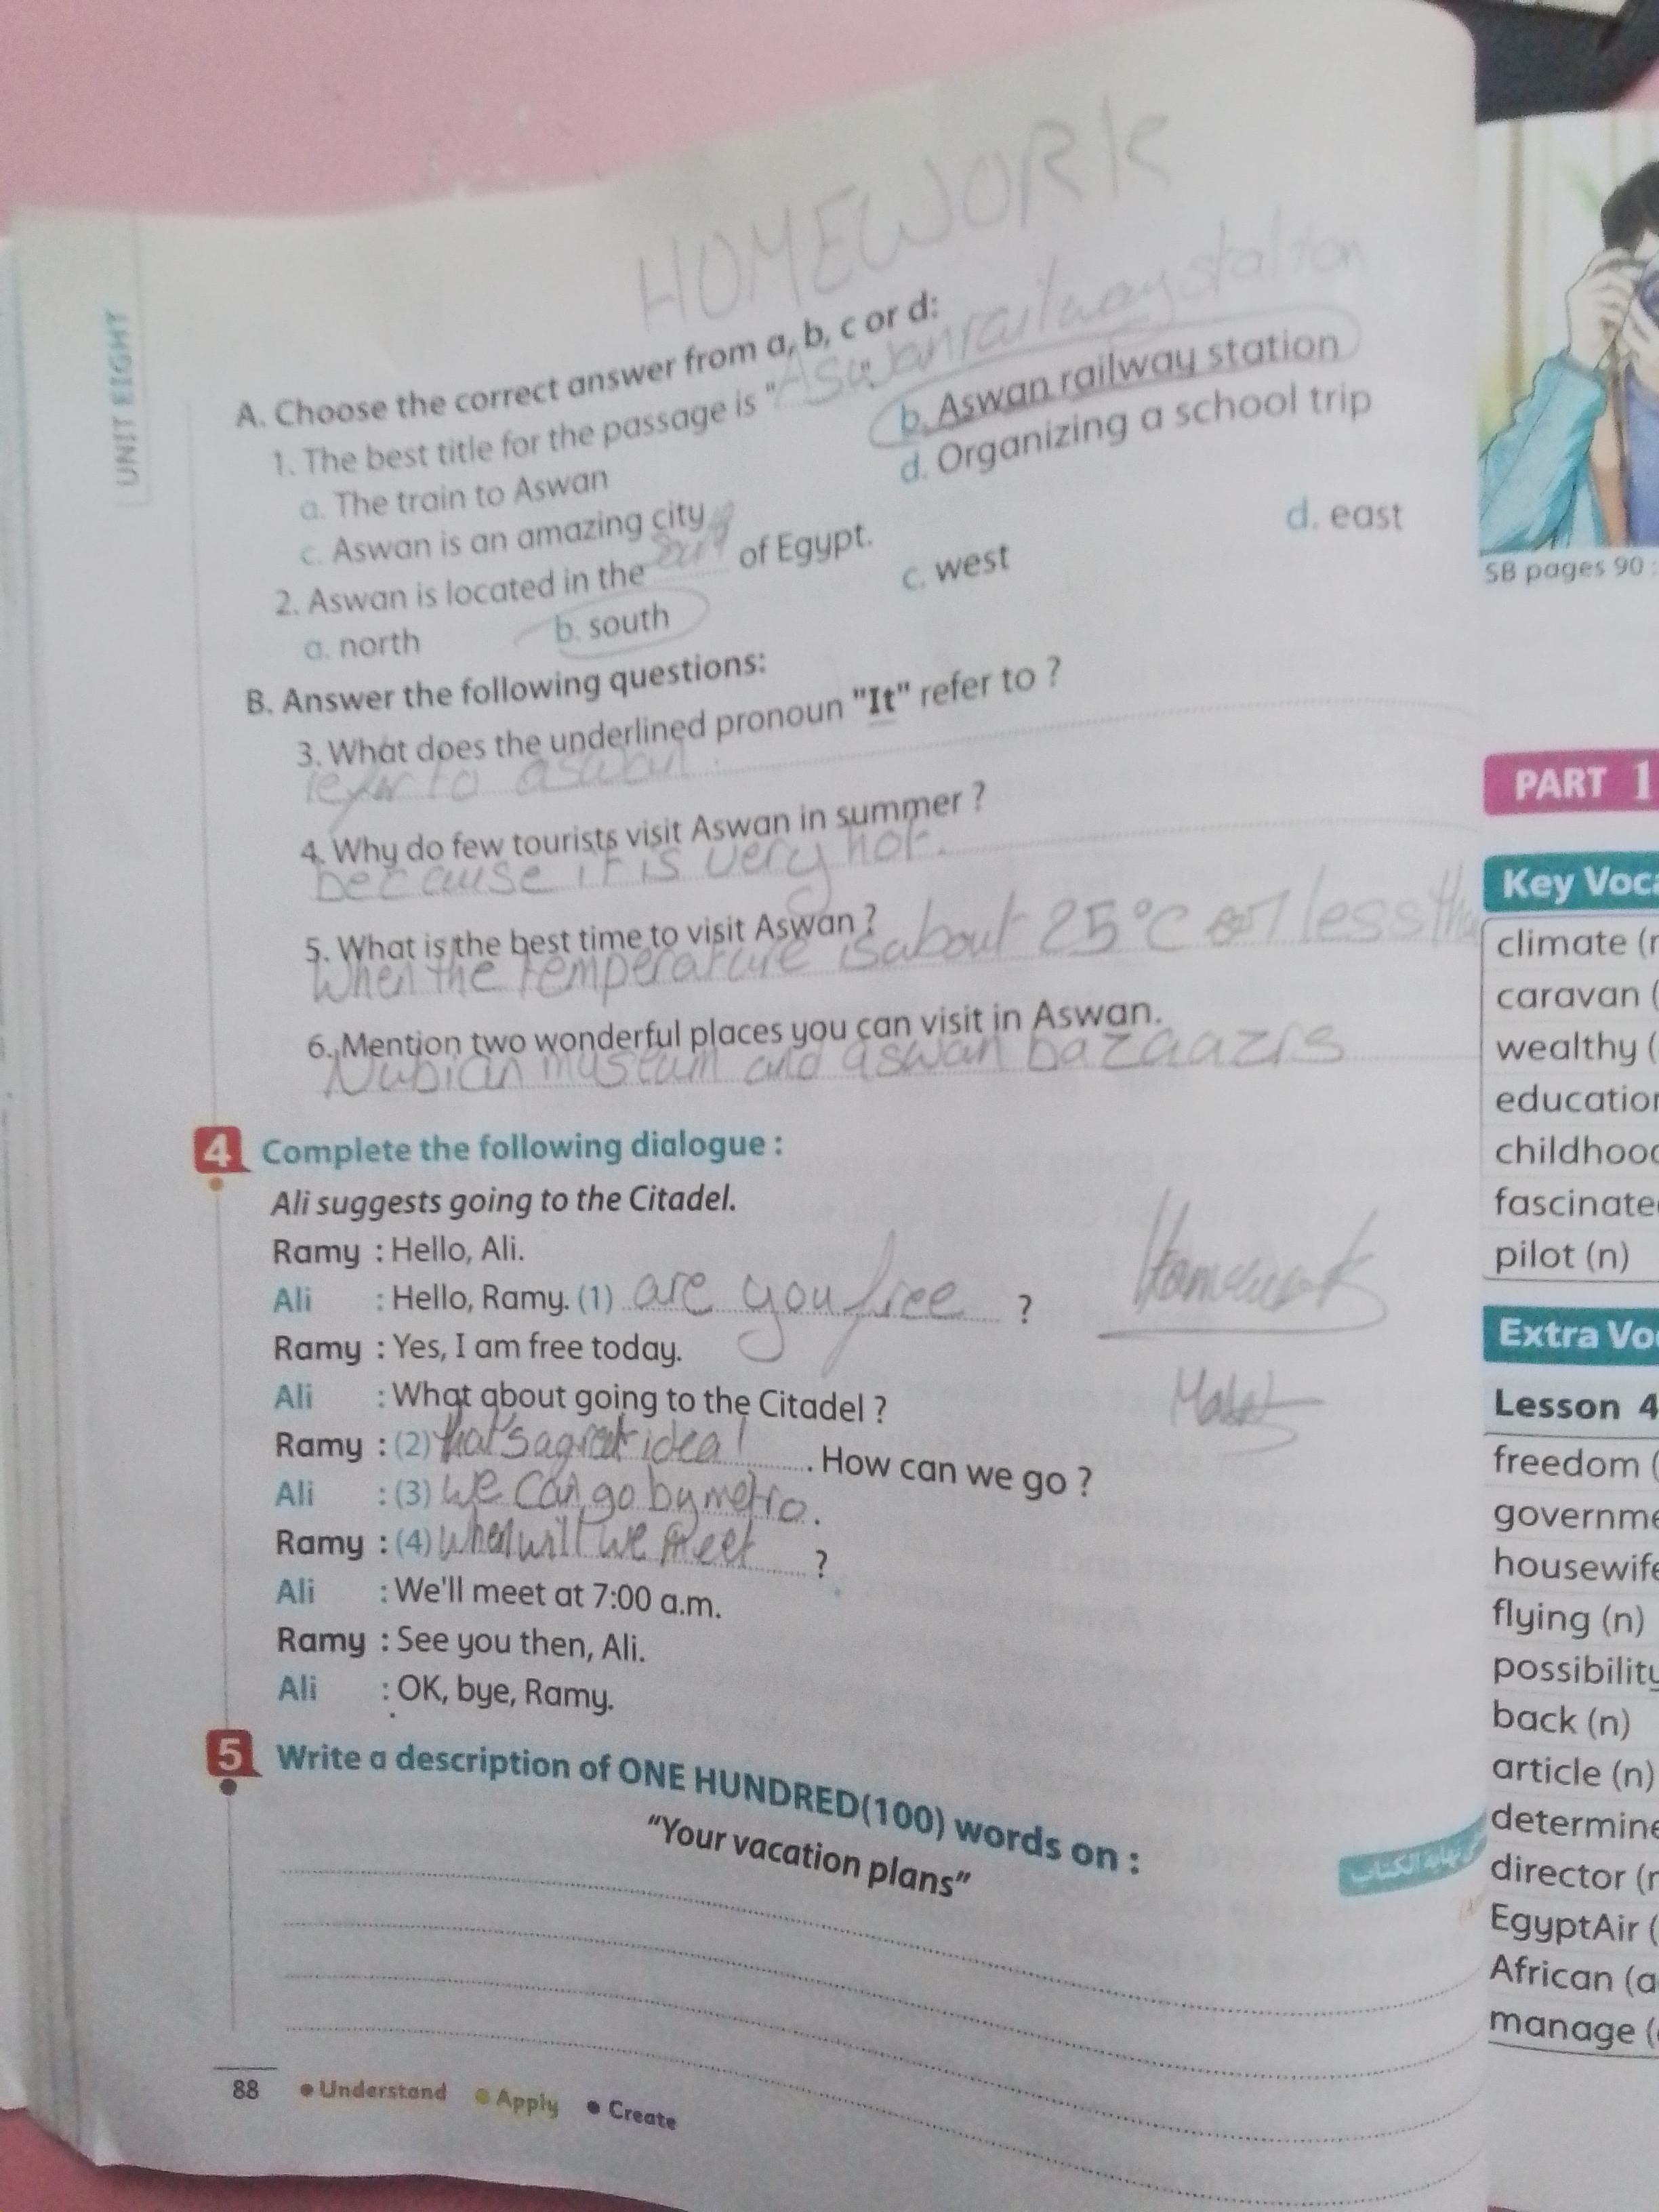 HOMEWORK
UNIT EIGHT
A. Choose the correct answer from a, b, c or d:
1. The best title for the passage is " Aswan railway stalion "
a. The train to Aswan b. Aswan railway station
c. Aswan is an amazing city d. Organizing a school trip
2. Aswan is located in the of Egypt.
a. north b. south c. west d. east
B. Answer the following questions:
3. What does the underlined pronoun "It" refer to ?
refer to aswan .
4. Why do few tourists visit Aswan in summer ?
because it is very hot.
5. What is the best time to visit Aswan ?
When the temperature is about 25°C or less tha
6. Mention two wonderful places you can visit in Aswan.
Nubian museum and aswan bazaazrs
4 Complete the following dialogue :
Ali suggests going to the Citadel.
Ramy : Hello, Ali.
Ali : Hello, Ramy. (1) are you free ?
Homework
Ramy : Yes, I am free today.
Ali : What about going to the Citadel ?
Ramy : (2) that's a great idea! . How can we go ?
Ali : (3) we can go by metro .
Ramy : (4) when will we meet ?
Ali : We'll meet at 7:00 a.m.
Ramy : See you then, Ali.
Ali : OK, bye, Ramy.
5 Write a description of ONE HUNDRED(100) words on :
"Your vacation plans"
نهاية الكتاب
88 • Understand • Apply • Create
SB pages 90 :
PART 1
Key Voca
climate (n
caravan (
wealthy (
education
childhood
fascinate
pilot (n)
Extra Vo
Lesson 4
freedom (
governme
housewife
flying (n)
possibility
back (n)
article (n)
determine
director (n
EgyptAir (
African (a
manage (